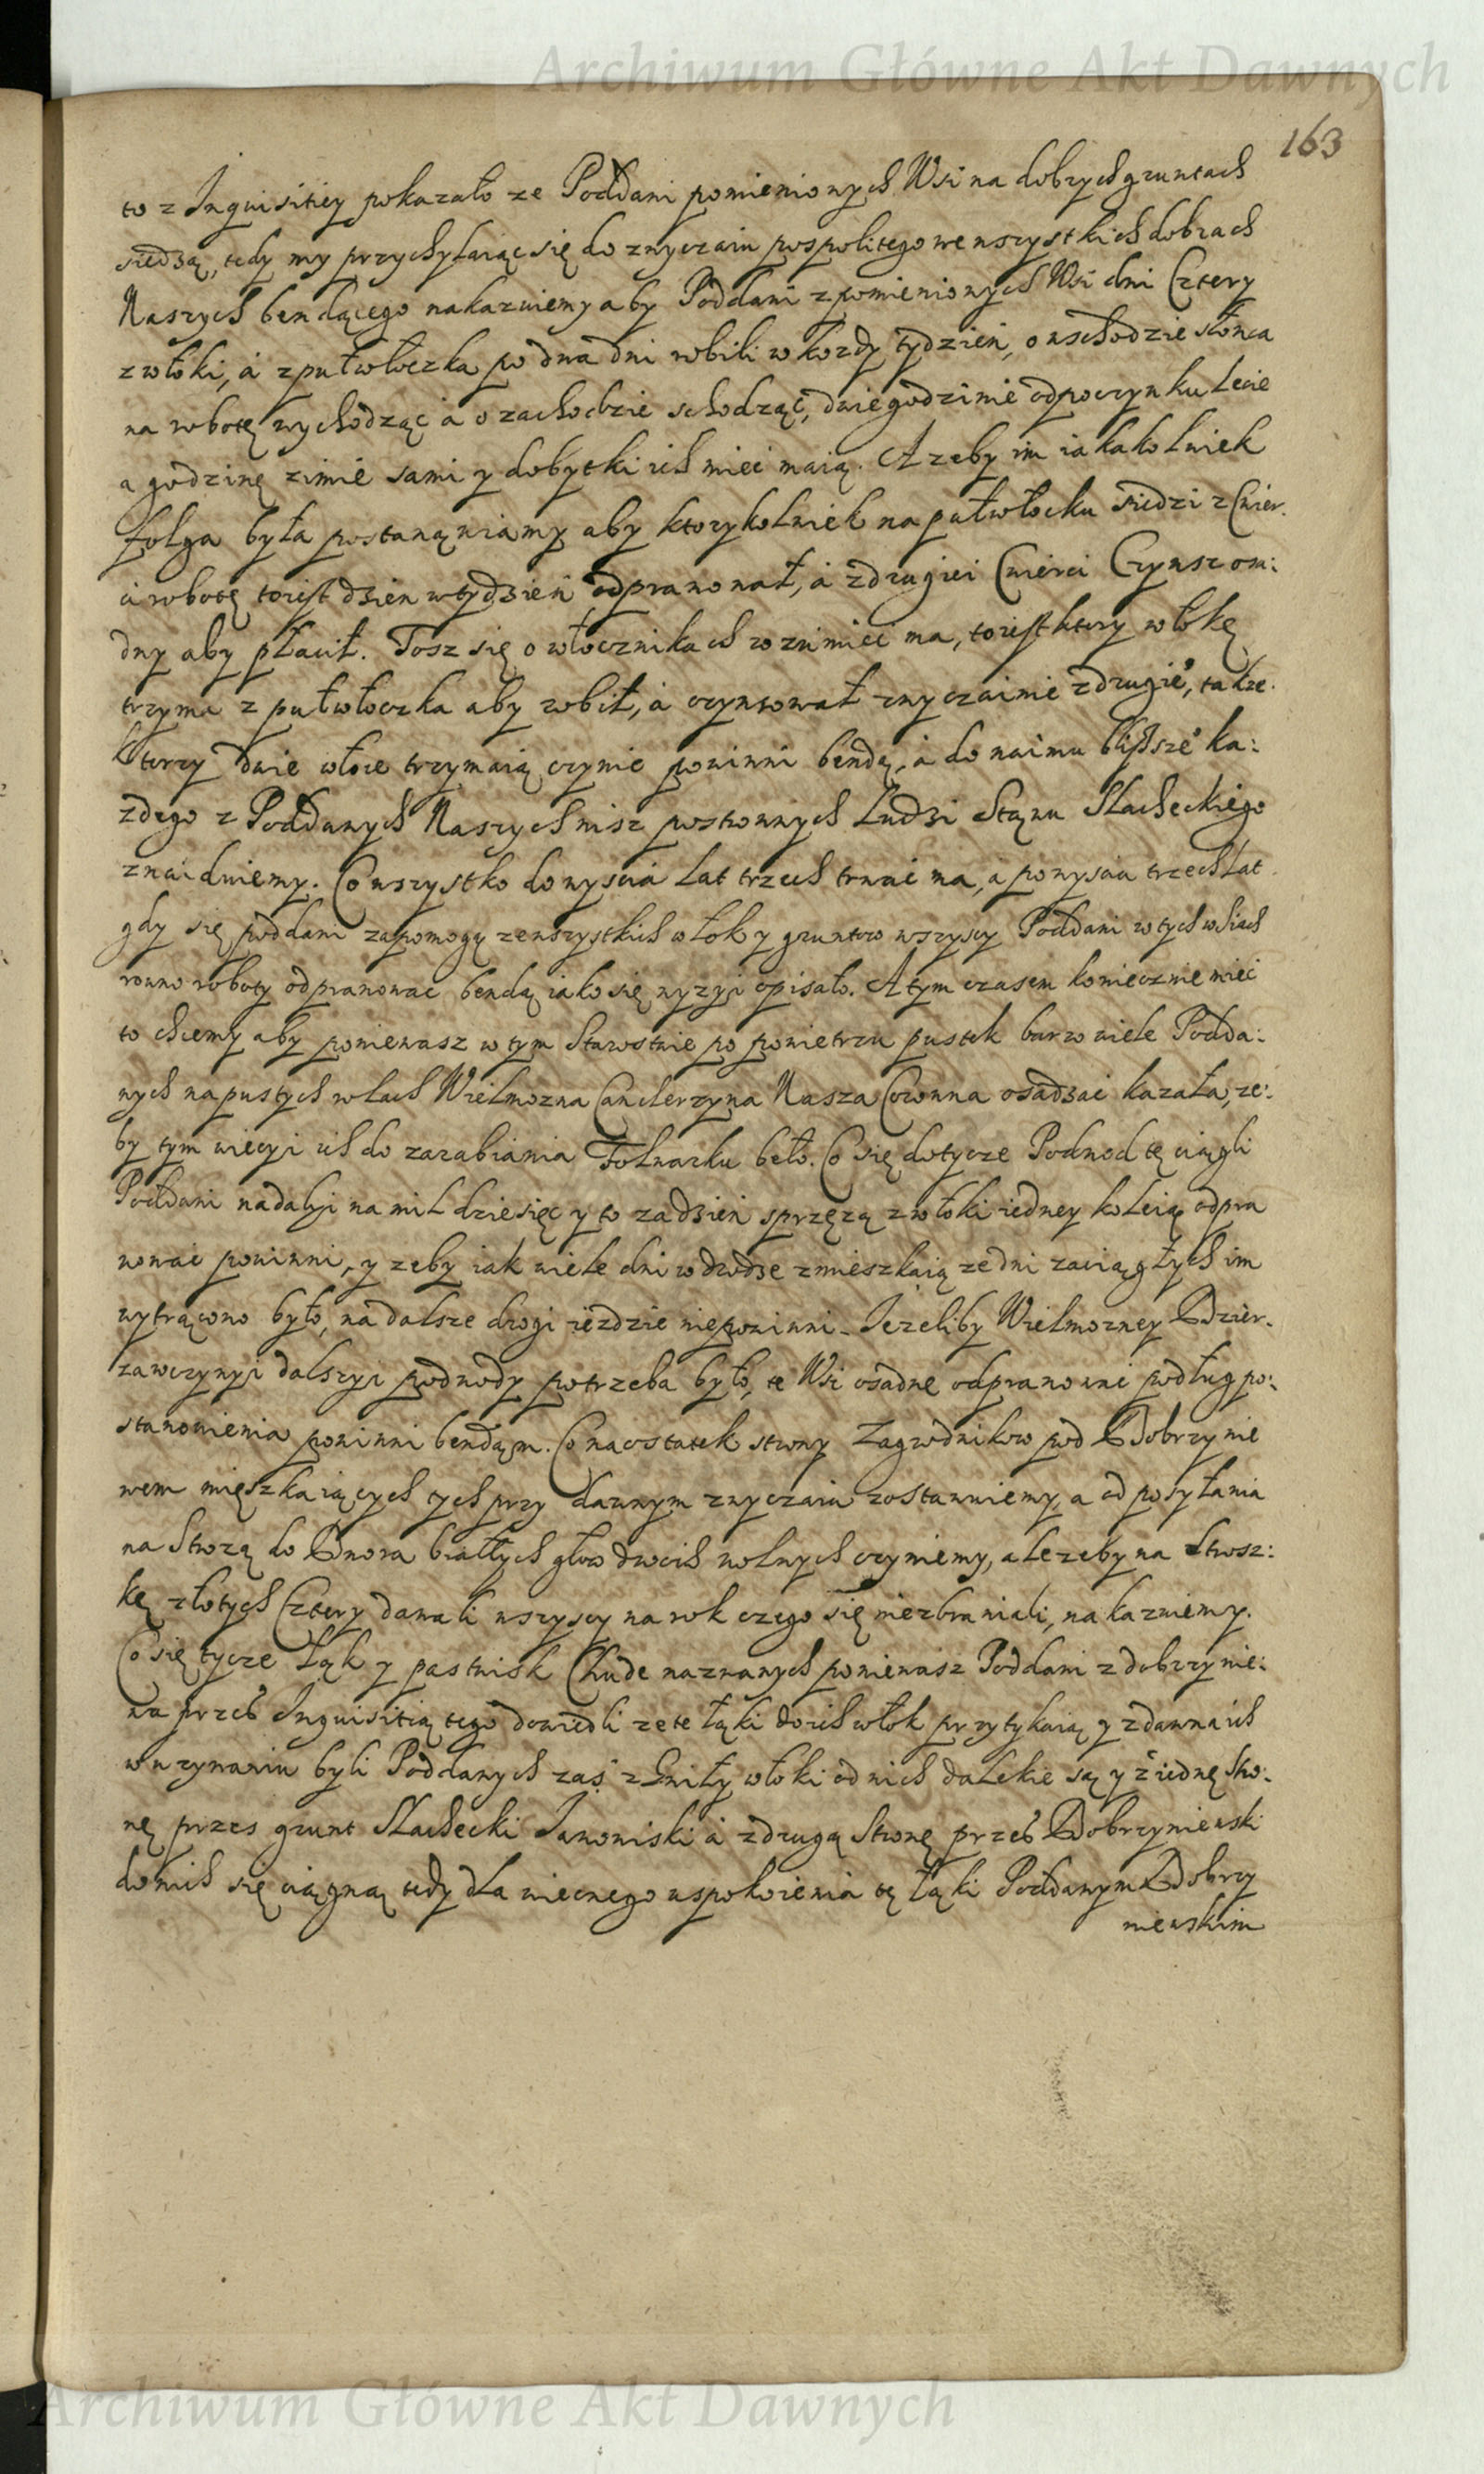 Archiwum Główne Akt Dawnych
163
to z Inquisitiey pokazało ze Poddani pomienionych Wsi na dobrych gruntach
siedzą, tedy my przychylaiąc się do zwyczaiu pospolitego we wszystkich dobrach
Naszych bendącego nakazuiemy aby Poddani z pomienionych Wsi dni Cztery
z włoki, á z pułwłoczka po dwa dni robili w kozdy tydzień, o wschodzie słonca
na robotę wychodząc á o zachodzie schodząc, dwie godzinie odpoczynku Lecie
a godzinę zimie sami y dobytki ich mieć maią. A zeby im iakakolwiek
folga była postanawiamy aby ktorykolwiek na pułwłocku siedzi z Cwier:
ci robotę toiest dzien w tydzień odprawował, á z drugiei Cwierci Czynsz ou:
dny aby płacił. Tosz się o włocznikach rozumieć ma, toiest ktory włokę
trzyma z pułwłoczka aby robił, á czynsował zwyczainie z drugie°, takze
ktorzy dwie włoce trzymaią czynic powinni bendą, á do naimu bliższe° ka:
zdego z Poddanych Naszych nisz postronnych Ludzi Stanu Slacheckiego
znaiduiemy. Co wszystko do wyscia Lat trzech trwać ma, a po wysciu trzech Lat
gdy się poddani zapomogą ze wszystkich włok y gruntow wszyscy Poddani w tych wsiach
rowno roboty odprawowac bendą iako się wyzyi opisało. A tym czasem koniecznie mieć
to chcemy aby poniewasz w tym Starostwie po powietrzu pustek barzo wiele Podda:
nych na pustych rolach Wielmozna Canclerzyna Nasza Coronna osadzać kazała, ze:
by tym wiecyi ich do zarabiania Folwarku beło. Co się dotycze Podwod tę ciągli
Poddani nadalyi na mil dziesięc y to za dzień sprzęzą z włoki iedney koleią odpra
wowac powinni, y zeby iak wiele dni w drodze zmieszkaią ze dni zaciągłych im
wytrącono było, na dalsze drogi iezdzic niepowinni. Jezeliby Wielmozney Dzier:
zawczynyi dalszyi podwody potrzeba było, te Wsi osadne odprawowac podług po:
stanowienia powinni bendąm. Co na ostatek strony Zagrodnikow pod Dobrzynie
wem mięszkaiących tych przy dawnym zwyczaiu zostawuiemy, a od posyłania
na Strozą do Dwora białłych głow dwoch wolnych czyniemy, ale zeby na Strosz:
kę złotych Cztery dawali wszyscy na rok czego się niezbraniali, nakazuiemy.
Co się tycze Łąk y pastwisk Chude nazwanych poniewasz Poddani z dobrzynie:
wa przes Inquisitią tego dowiedli ze te łąki do ich włok przytykaią y z dawna ich
w uzywaniu byli Poddanych zas z Gniły włoki od nich dalekie są y z iednę stro:
nę przes grunt Slachecki Janowiski á z drugą stronę przes Dobrzyniewski
do nich się ciągną tedy dla wiecznego uspokoienia tę łąki Poddanym Dobrzy
niewskim
Archiwum Główne Akt Dawnych